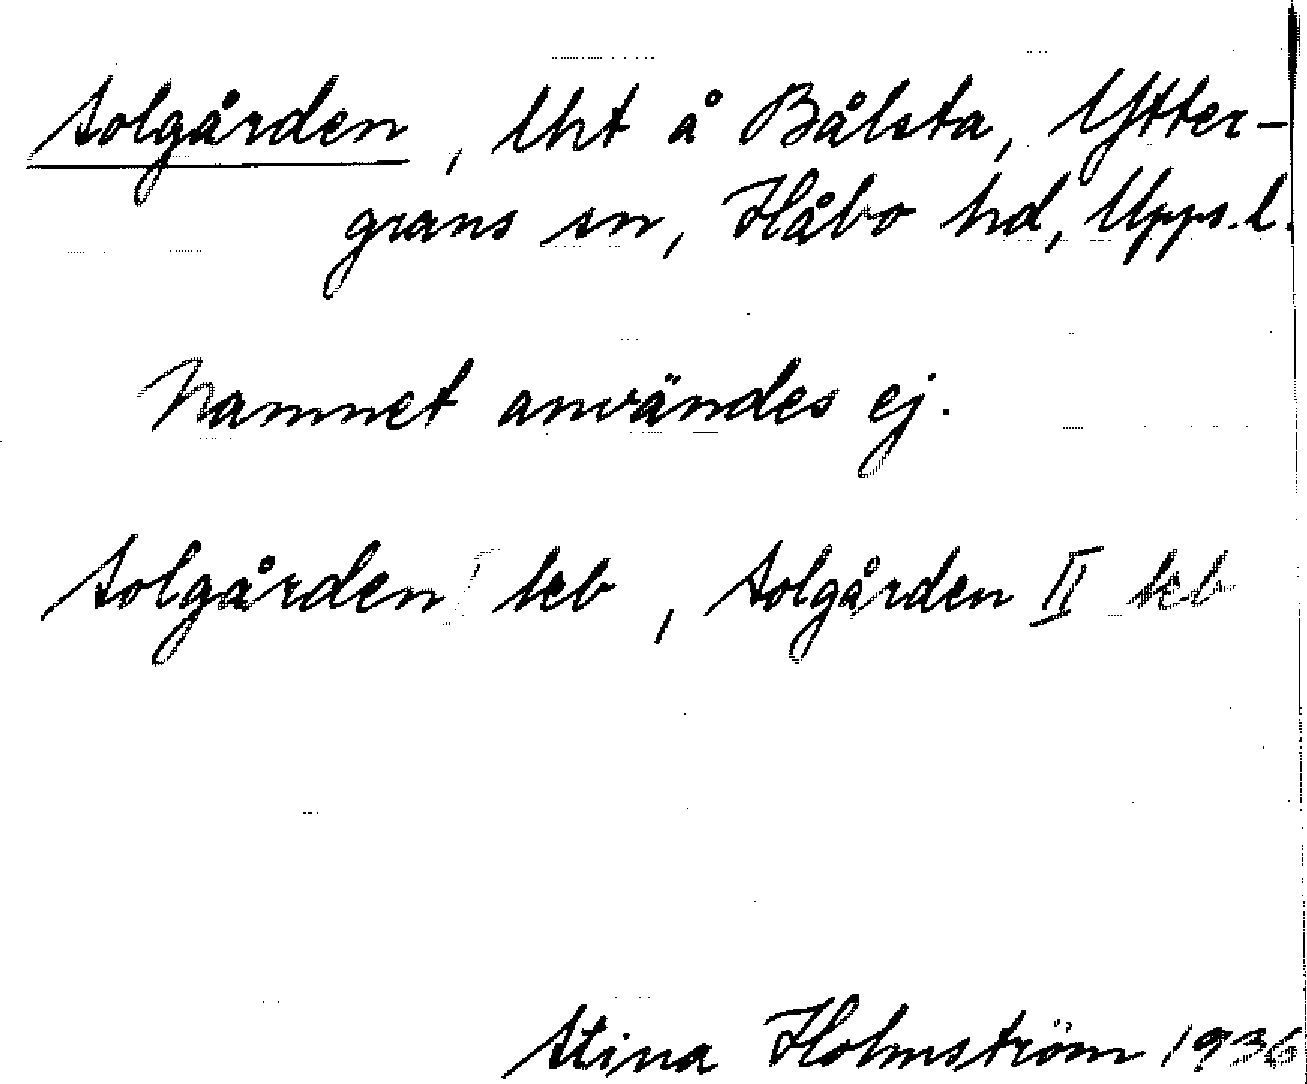 Solgården, lht å Bålsta, Ytter-
grans sn, Håbo hd, Upps.l.
Namnet användes ej.
Solgården I teb, Solgården II teb
Stina Holmström 1936